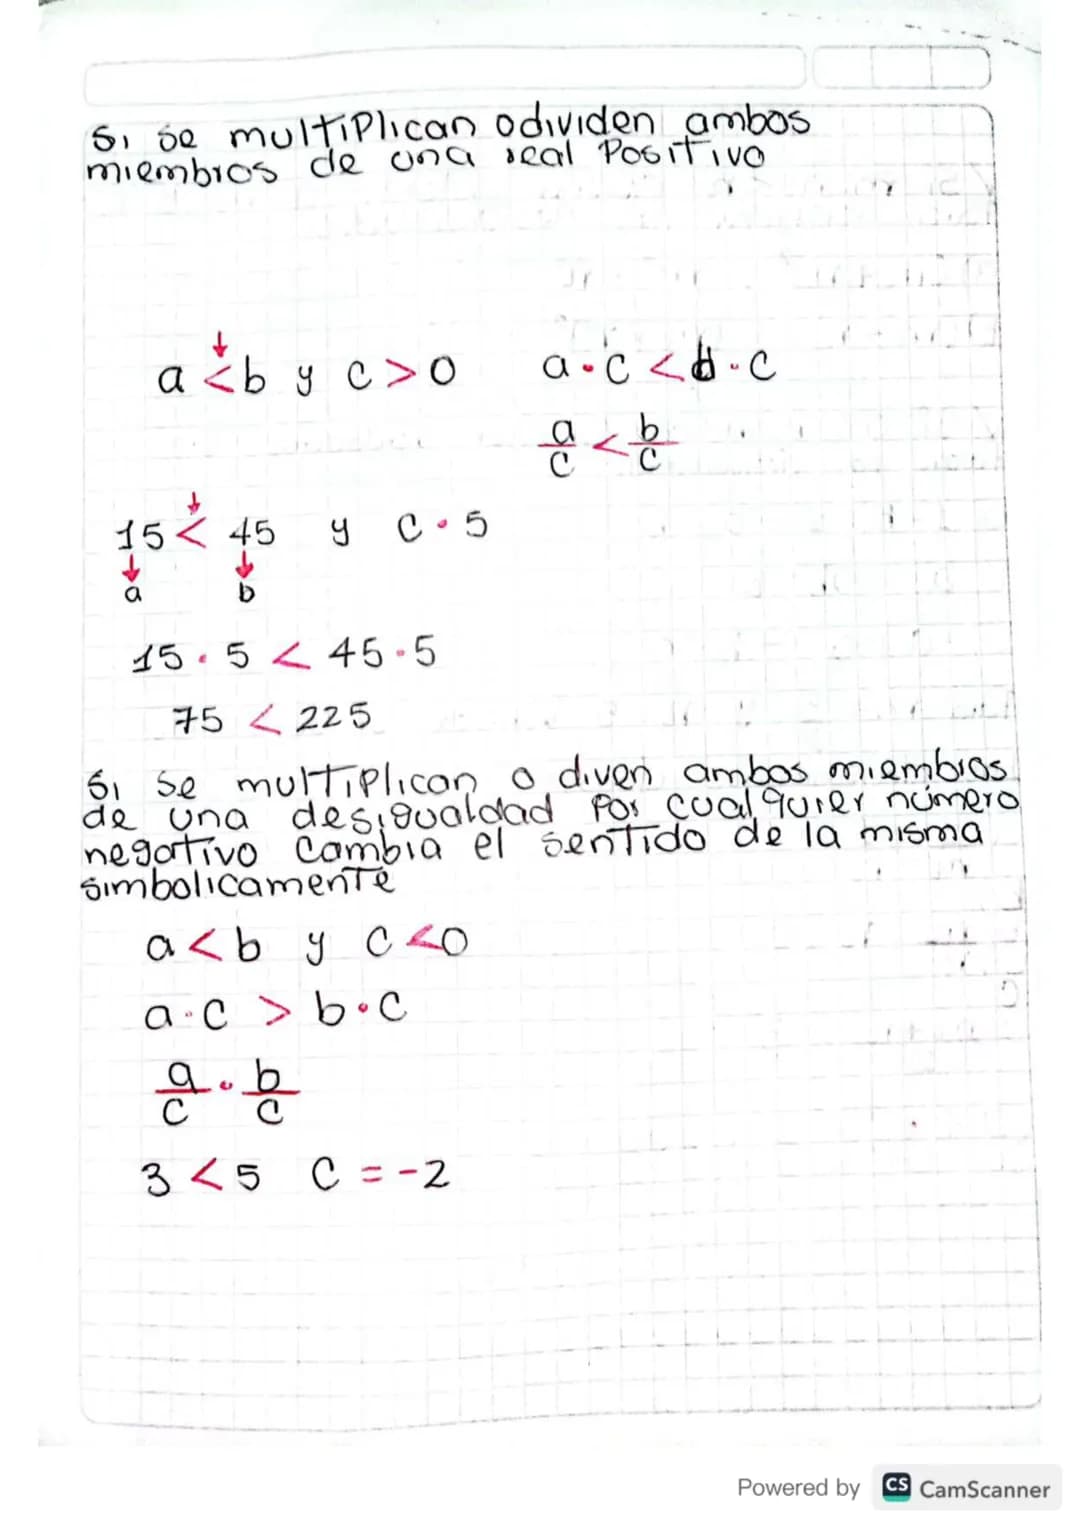 Si se multiplican o dividen ambos
miembros de una real Positivo
↓
a < b y c > 0 a · c < b · c
a/c < b/c
↓
15 < 45 y c · 5
↓ ↓
a b
15 · 5 < 45 · 5
75 < 225
Si se multiplican o diven ambos miembros
de una desigualdad Por cualquier número
negativo Cambia el sentido de la misma
simbolicamente
a < b y c < 0
a · c > b · c
a/c · b/c
3 < 5 c = -2
Powered by CS CamScanner